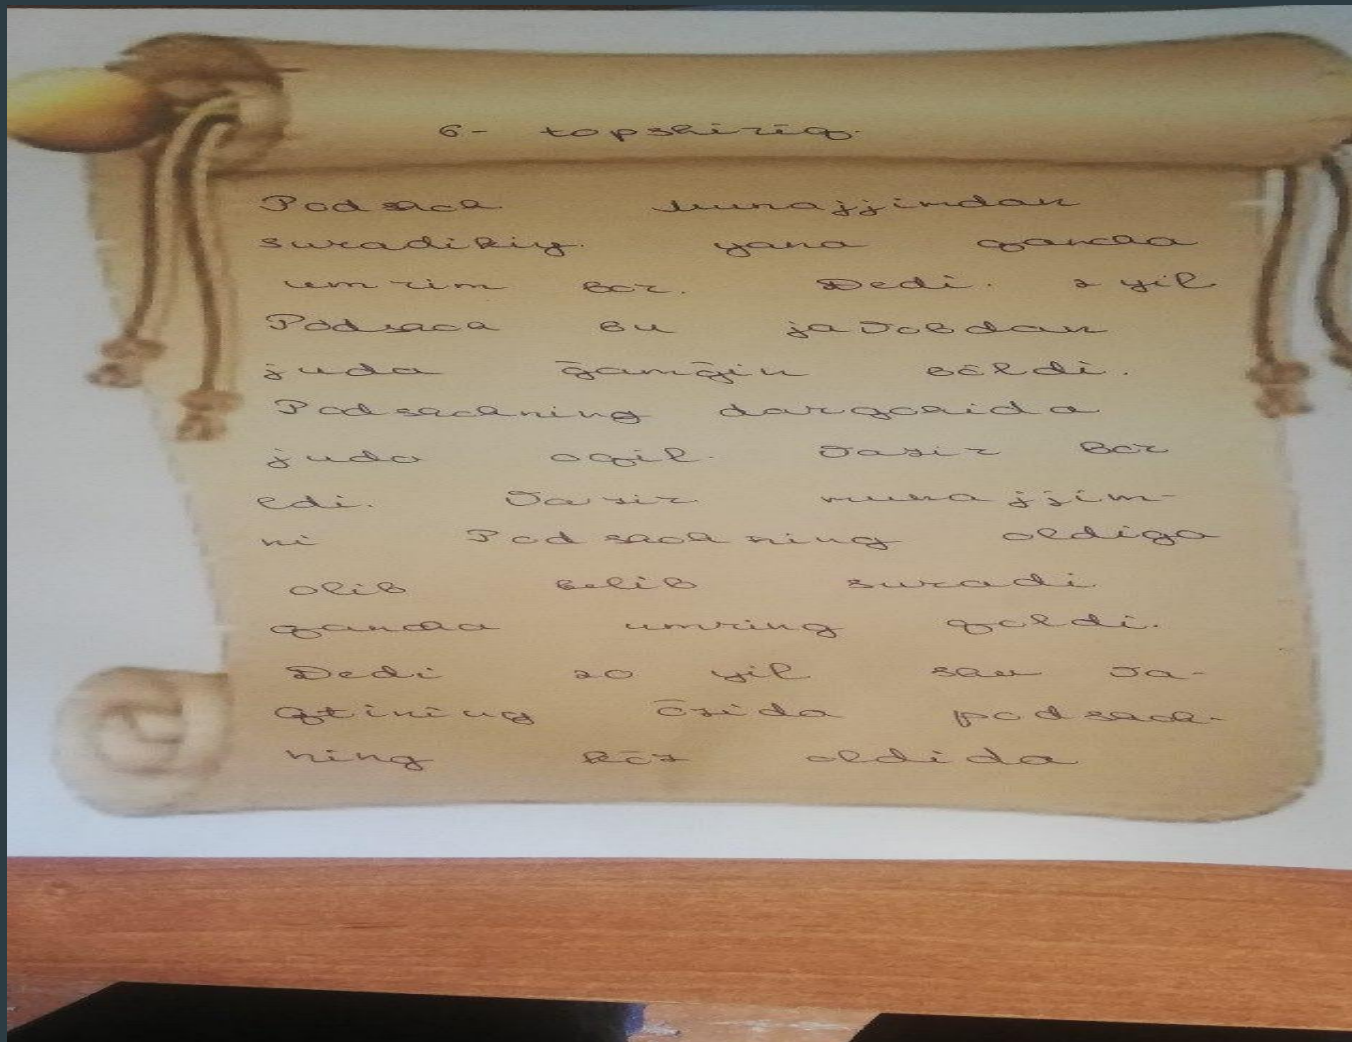 6- topshiriq.
Podshoh munajjimdan
suradikiy. yana qancha
umrim bor. Dedi. 2 yil
Podshoh bu javobdan
juda ḡamḡin bōldi.
Podshohning dargohida
juda oqil. vazir bor
edi. Vazir munajjim-
ni Podshohning oldiga
olib kelib suradi.
qancha umring qoldi.
Dedi 20 yil shu va-
qtining ōzida podshoh-
ning kōz oldida